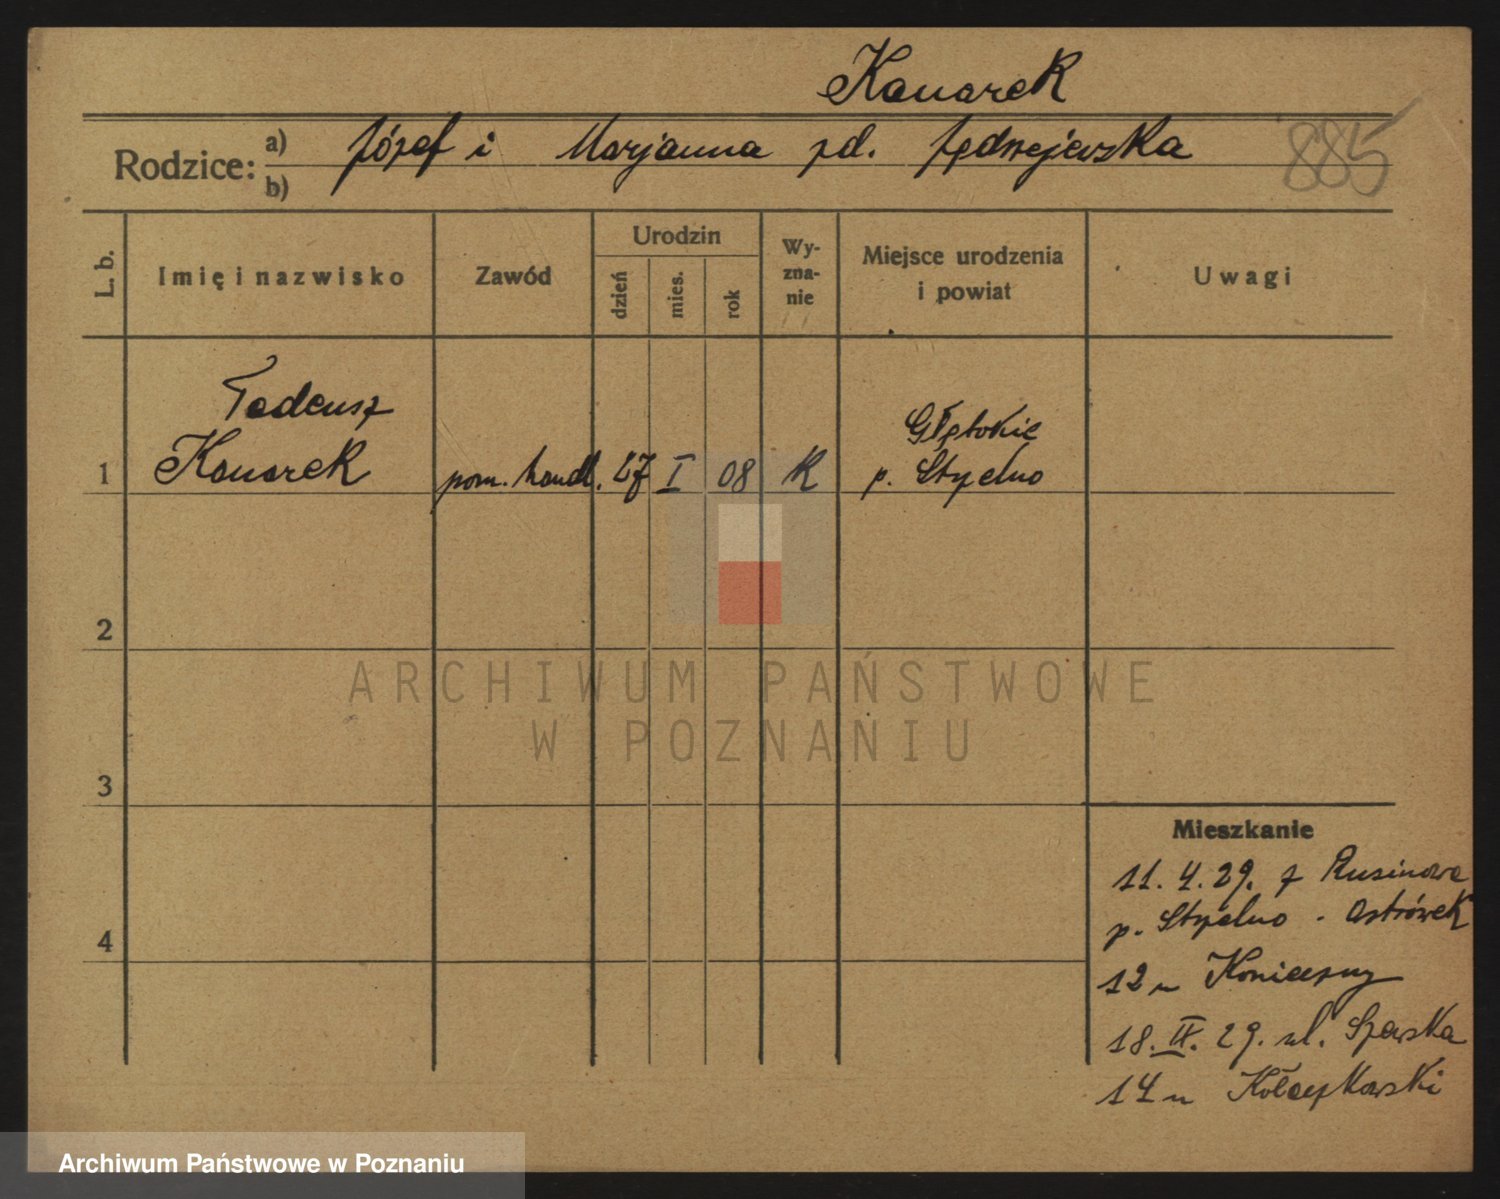 Kanarek
885
Rodzice: a) Józef i Marjanna zd. Jędrzejewska
b)
L. b.
Imię i nazwisko
Zawód
Urodzin
dzień
mies.
rok
Wy-
zna-
nie
Miejsce urodzenia
i powiat
Uwagi
Tadeusz
1 Kanarek pom. handl. 27 I 08 K
Głębokie
p. Strzelno
2
3
4
ARCHIWUM PAŃSTWOWE
W POZNANIU
Mieszkanie
11. 4. 29. z Rusinowa
p. Strzelno - Ostrówek
12 u Konieczny
18. IX. 29. ul. Szewska
14 u Kołczykowski
Archiwum Państwowe w Poznaniu